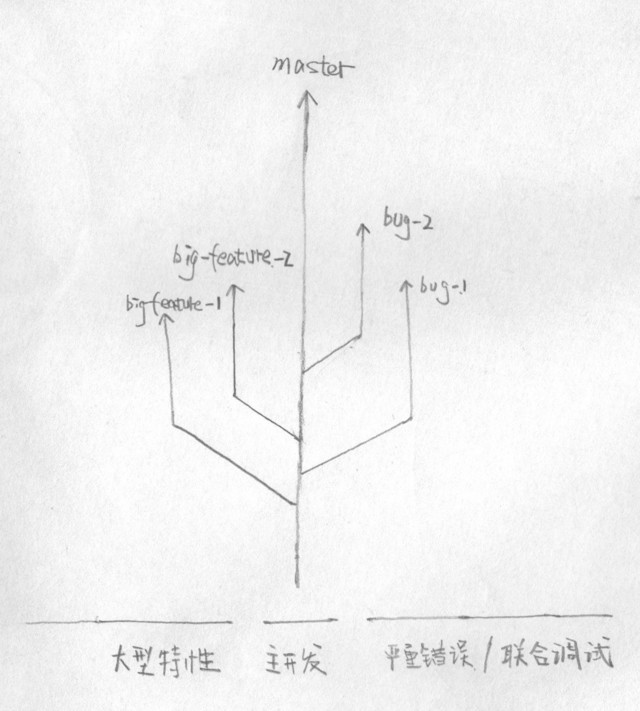 master
bug-2
big-feature-2
bug-1
big-feature-1
大型特性
主开发
严重错误 / 联合调试